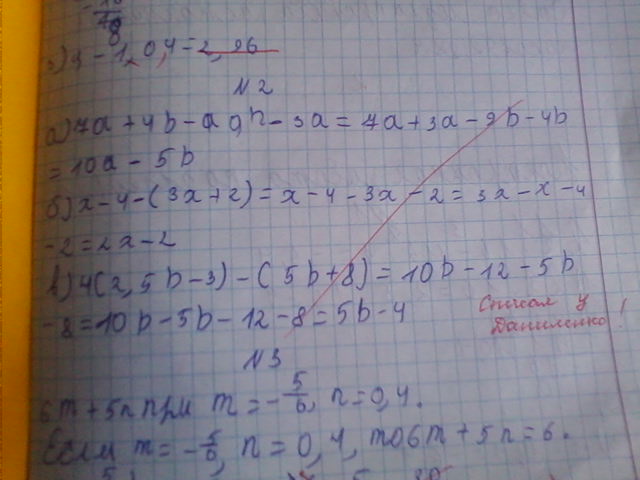 з) 3 - 1,0,4 = 2,96
N2
а) 7a + 4b - 9b - 3a = 7a + 3a - 9b - 4b
= 10a - 5b
б) x - 4 - (3x + 2) = x - 4 - 3x - 2 = 3x - x - 4
- 2 = 2x - 2
в) 4(2,5b - 3) - (5b + 8) = 10b - 12 - 5b
- 8 = 10b - 5b - 12 - 8 = 5b - 4
Списал у
Даниленко!
N3
6m + 5n при m = -5/6, n = 0,4.
Если m = -5/6, n = 0,4, то 6m + 5n = 6.